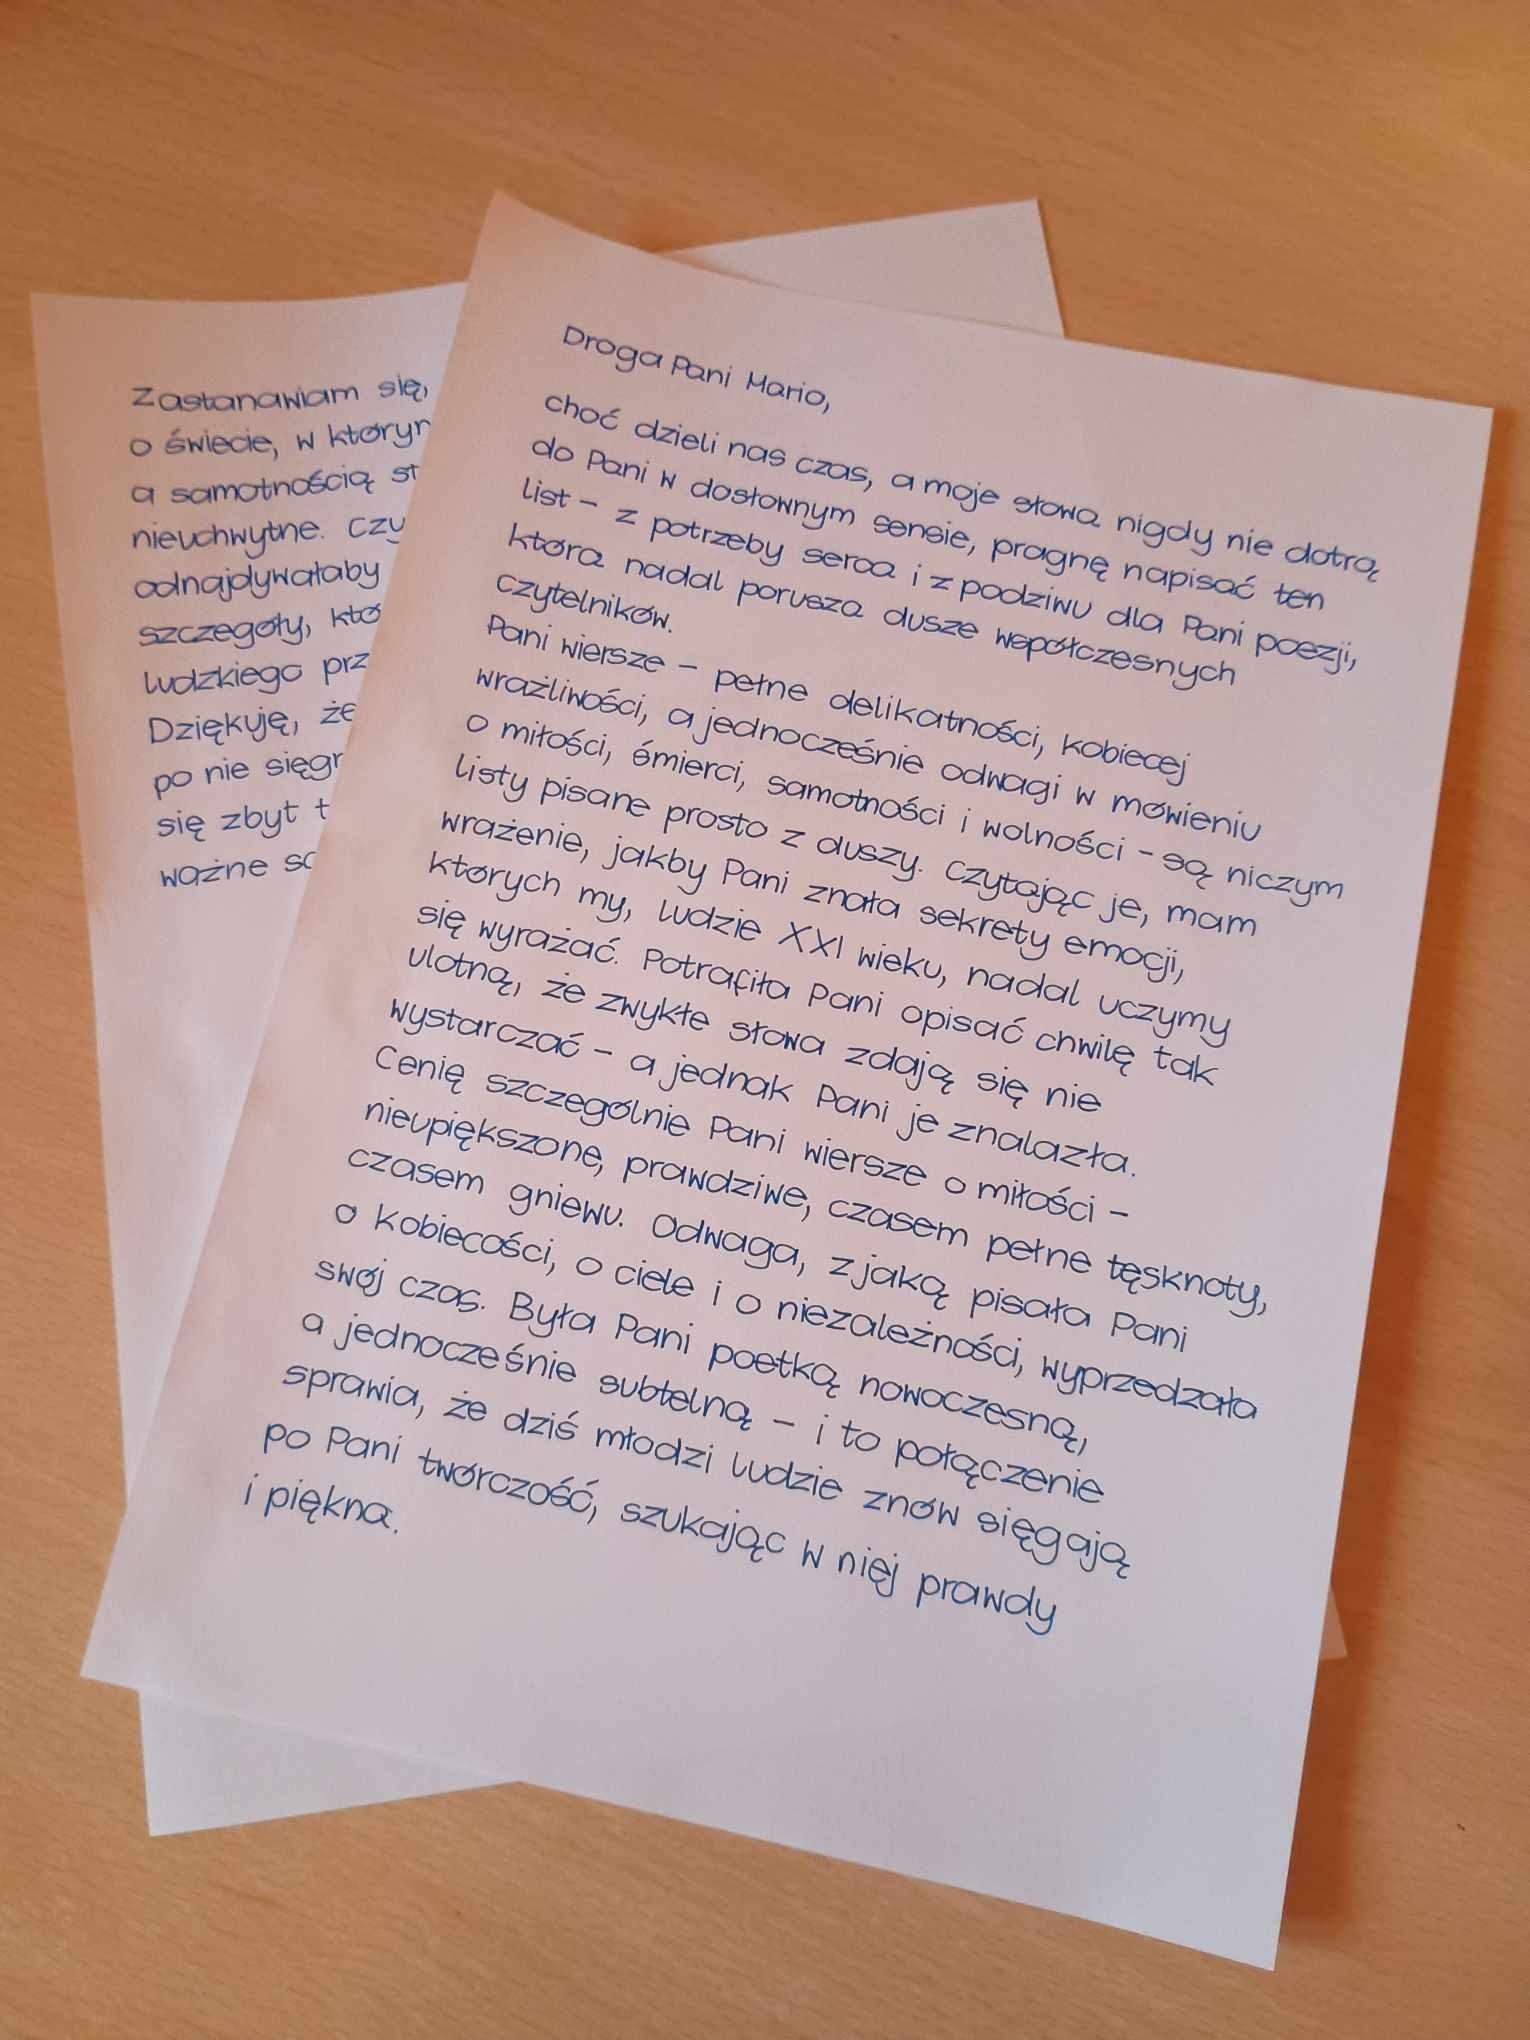 Droga Pani Mario,
choć dzieli nas czas, a moje słowa nigdy nie dotrą
do Pani w dosłownym sensie, pragnę napisać ten
list – z potrzeby serca i z podziwu dla Pani poezji,
która nadal porusza dusze współczesnych
czytelników.
Pani wiersze – pełne delikatności, kobiecej
wrażliwości, a jednocześnie odwagi w mówieniu
o miłości, śmierci, samotności i wolności – są niczym
listy pisane prosto z duszy. Czytając je, mam
wrażenie, jakby Pani znała sekrety emocji,
których my, ludzie XXI wieku, nadal uczymy
się wyrażać. Potrafiła Pani opisać chwilę tak
ulotną, że zwykłe słowa zdają się nie
wystarczać – a jednak Pani je znalazła.
Cenię szczególnie Pani wiersze o miłości –
nieupiększone, prawdziwe, czasem pełne tęsknoty,
czasem gniewu. Odwaga, z jaką pisała Pani
o kobiecości, o ciele i o niezależności, wyprzedzała
swój czas. Była Pani poetką nowoczesną,
a jednocześnie subtelną – i to połączenie
sprawia, że dziś młodzi ludzie znów sięgają
po Pani twórczość, szukając w niej prawdy
i piękna.
Zastanawiam się,
o świecie, w
a samotnością
nieuchwytne. Czy
odnajdywałaby
szczegóły,
ludzkiego
Dziękuję, że
po nie
się zbyt
ważne